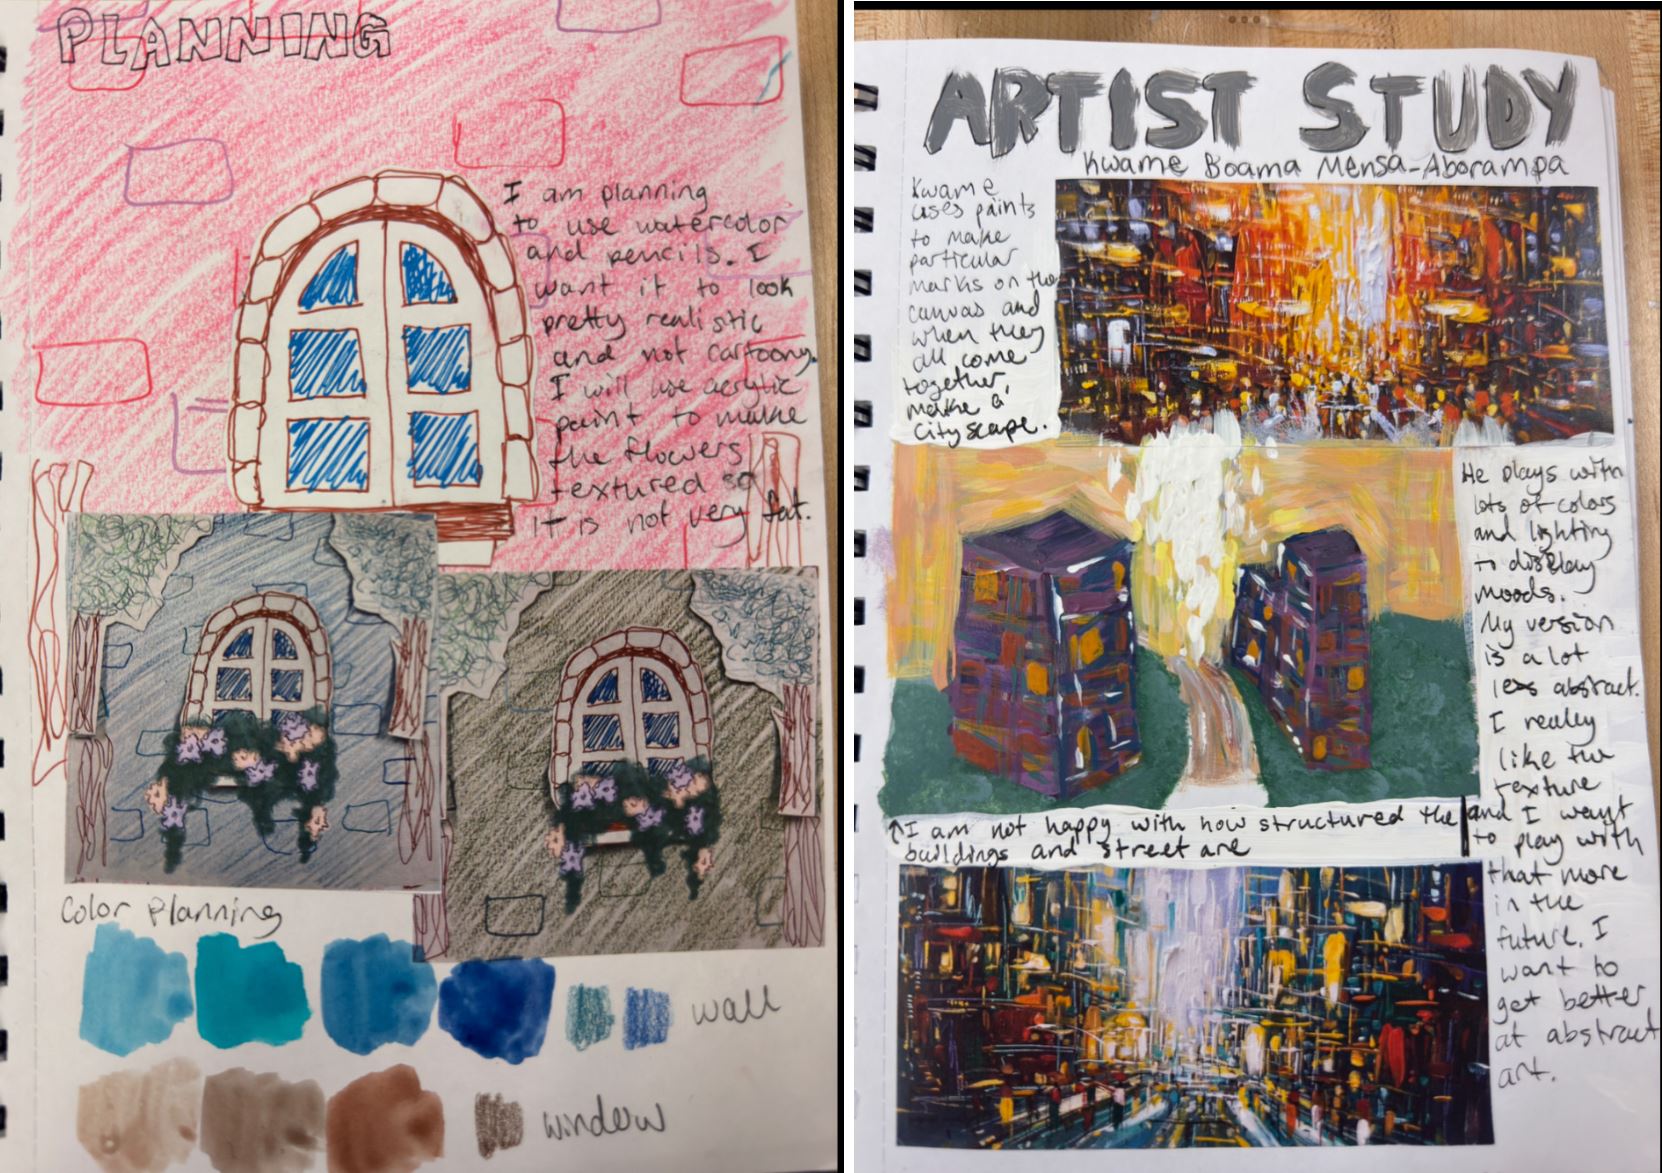 PLANNING
I am planning
to use watercolor
and pencils. I
want it to look
pretty realistic
and not cartoony.
I will use acrylic
paint to make
the flowers
textured so
it is not very flat.
Color Planning
wall
window
ARTIST STUDY
Kwame Boama Mensa-Aborampa
Kwame
uses paints
to make
particular
marks on the
canvas and
when they
all come
together,
make a
cityscape.
He plays with
lots of colors
and lighting
to display
moods.
My version
is a lot
less abstract.
I really
like the
texture
and I want
to play with
that more
in the
future. I
want to
get better
at abstract
art.
↑I am not happy with how structured the
buildings and street are